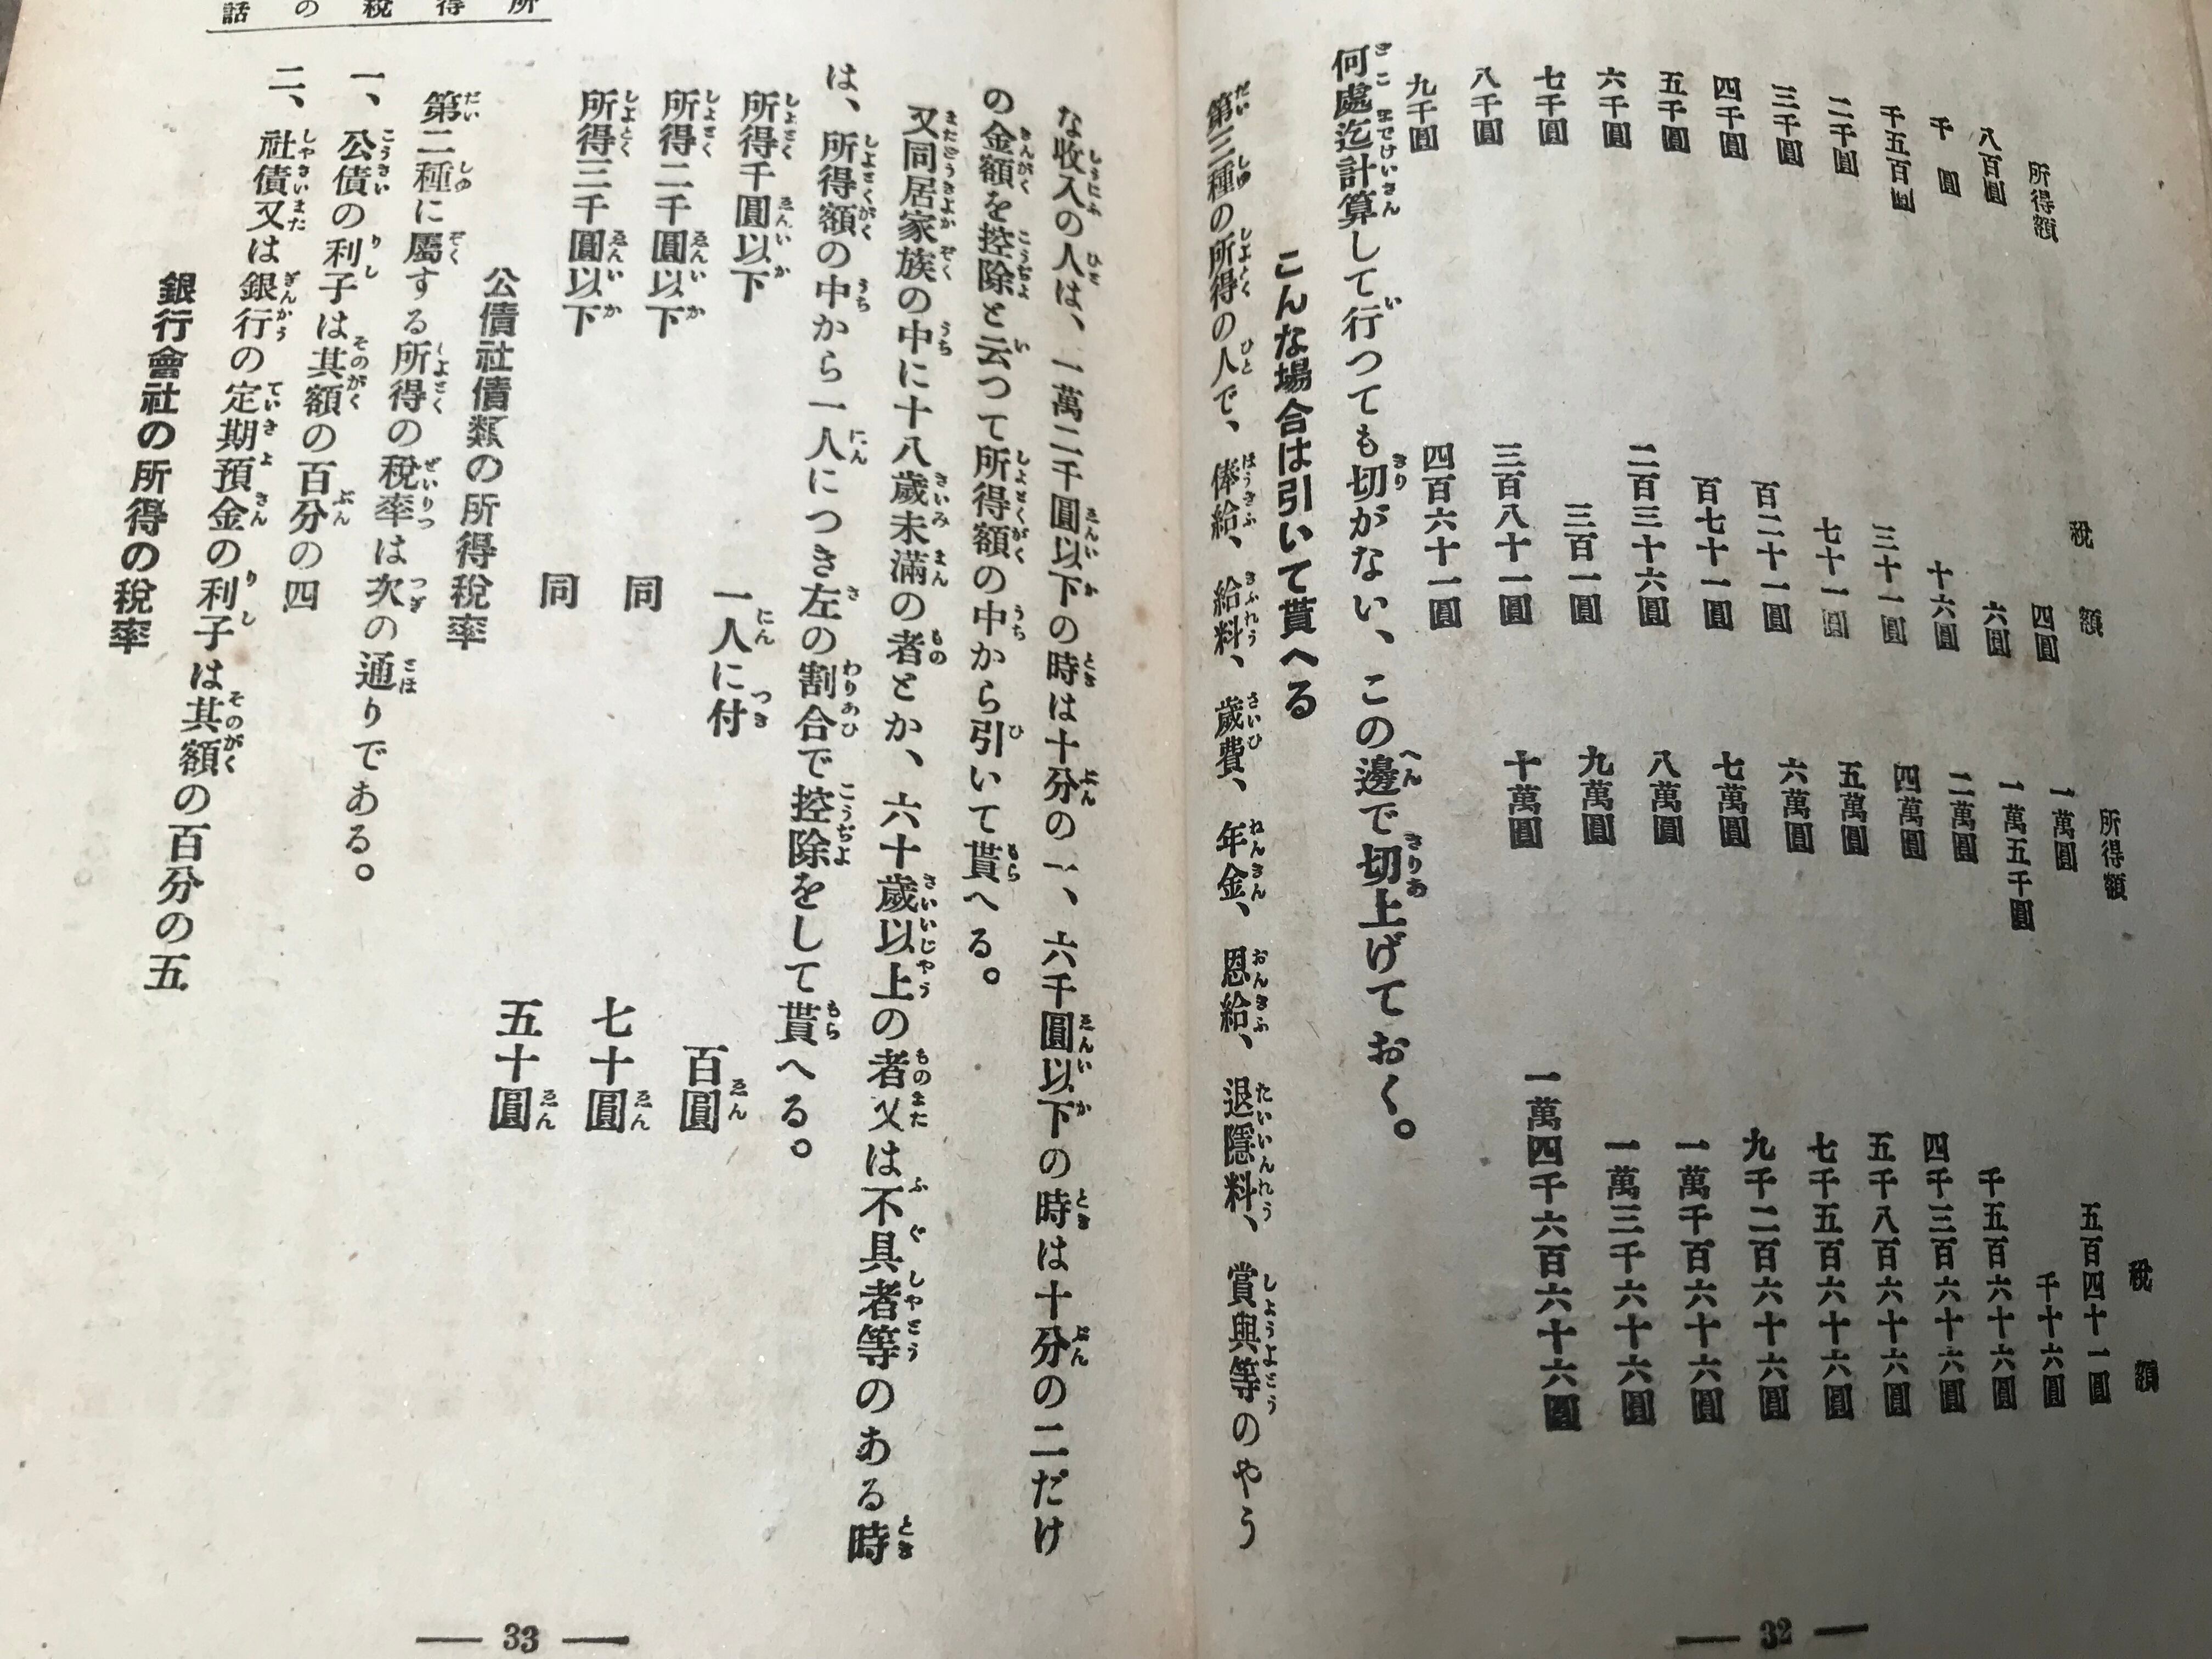 所得額
八百圓
千圓
千五百圓
二千圓
三千圓
四千圓
五千圓
六千圓
七千圓
八千圓
九千圓
税額
四圓
六圓
十六圓
三十一圓
七十一圓
百二十一圓
百七十一圓
二百三十六圓
三百一圓
三百八十一圓
四百六十一圓
所得額
一萬圓
一萬五千圓
二萬圓
四萬圓
五萬圓
六萬圓
七萬圓
八萬圓
九萬圓
十萬圓
税額
五百四十一圓
千十六圓
千五百六十六圓
四千三百六十六圓
五千八百六十六圓
七千五百六十六圓
九千二百六十六圓
一萬千百六十六圓
一萬三千六十六圓
一萬四千六百六十六圓
何處迄計算して行つても切がない、この邊で切上げておく。
こんな場合は引いて貰へる
第三種の所得の人で、俸給、給料、歲費、年金、恩給、退隱料、賞與等のやう
— 32 —
所得税の話
な收入の人は、一萬二千圓以下の時は十分の一、六千圓以下の時は十分の二だけ
の金額を控除と云つて所得額の中から引いて貰へる。
又同居家族の中に十八歲未滿の者とか、六十歲以上の者又は不具者等のある時
は、所得額の中から一人につき左の割合で控除をして貰へる。
所得千圓以下 一人に付 百圓
所得二千圓以下 同 七十圓
所得三千圓以下 同 五十圓
公債社債類の所得税率
第二種に屬する所得の税率は次の通りである。
一、公債の利子は其額の百分の四
二、社債又は銀行の定期預金の利子は其額の百分の五
銀行會社の所得の税率
— 33 —